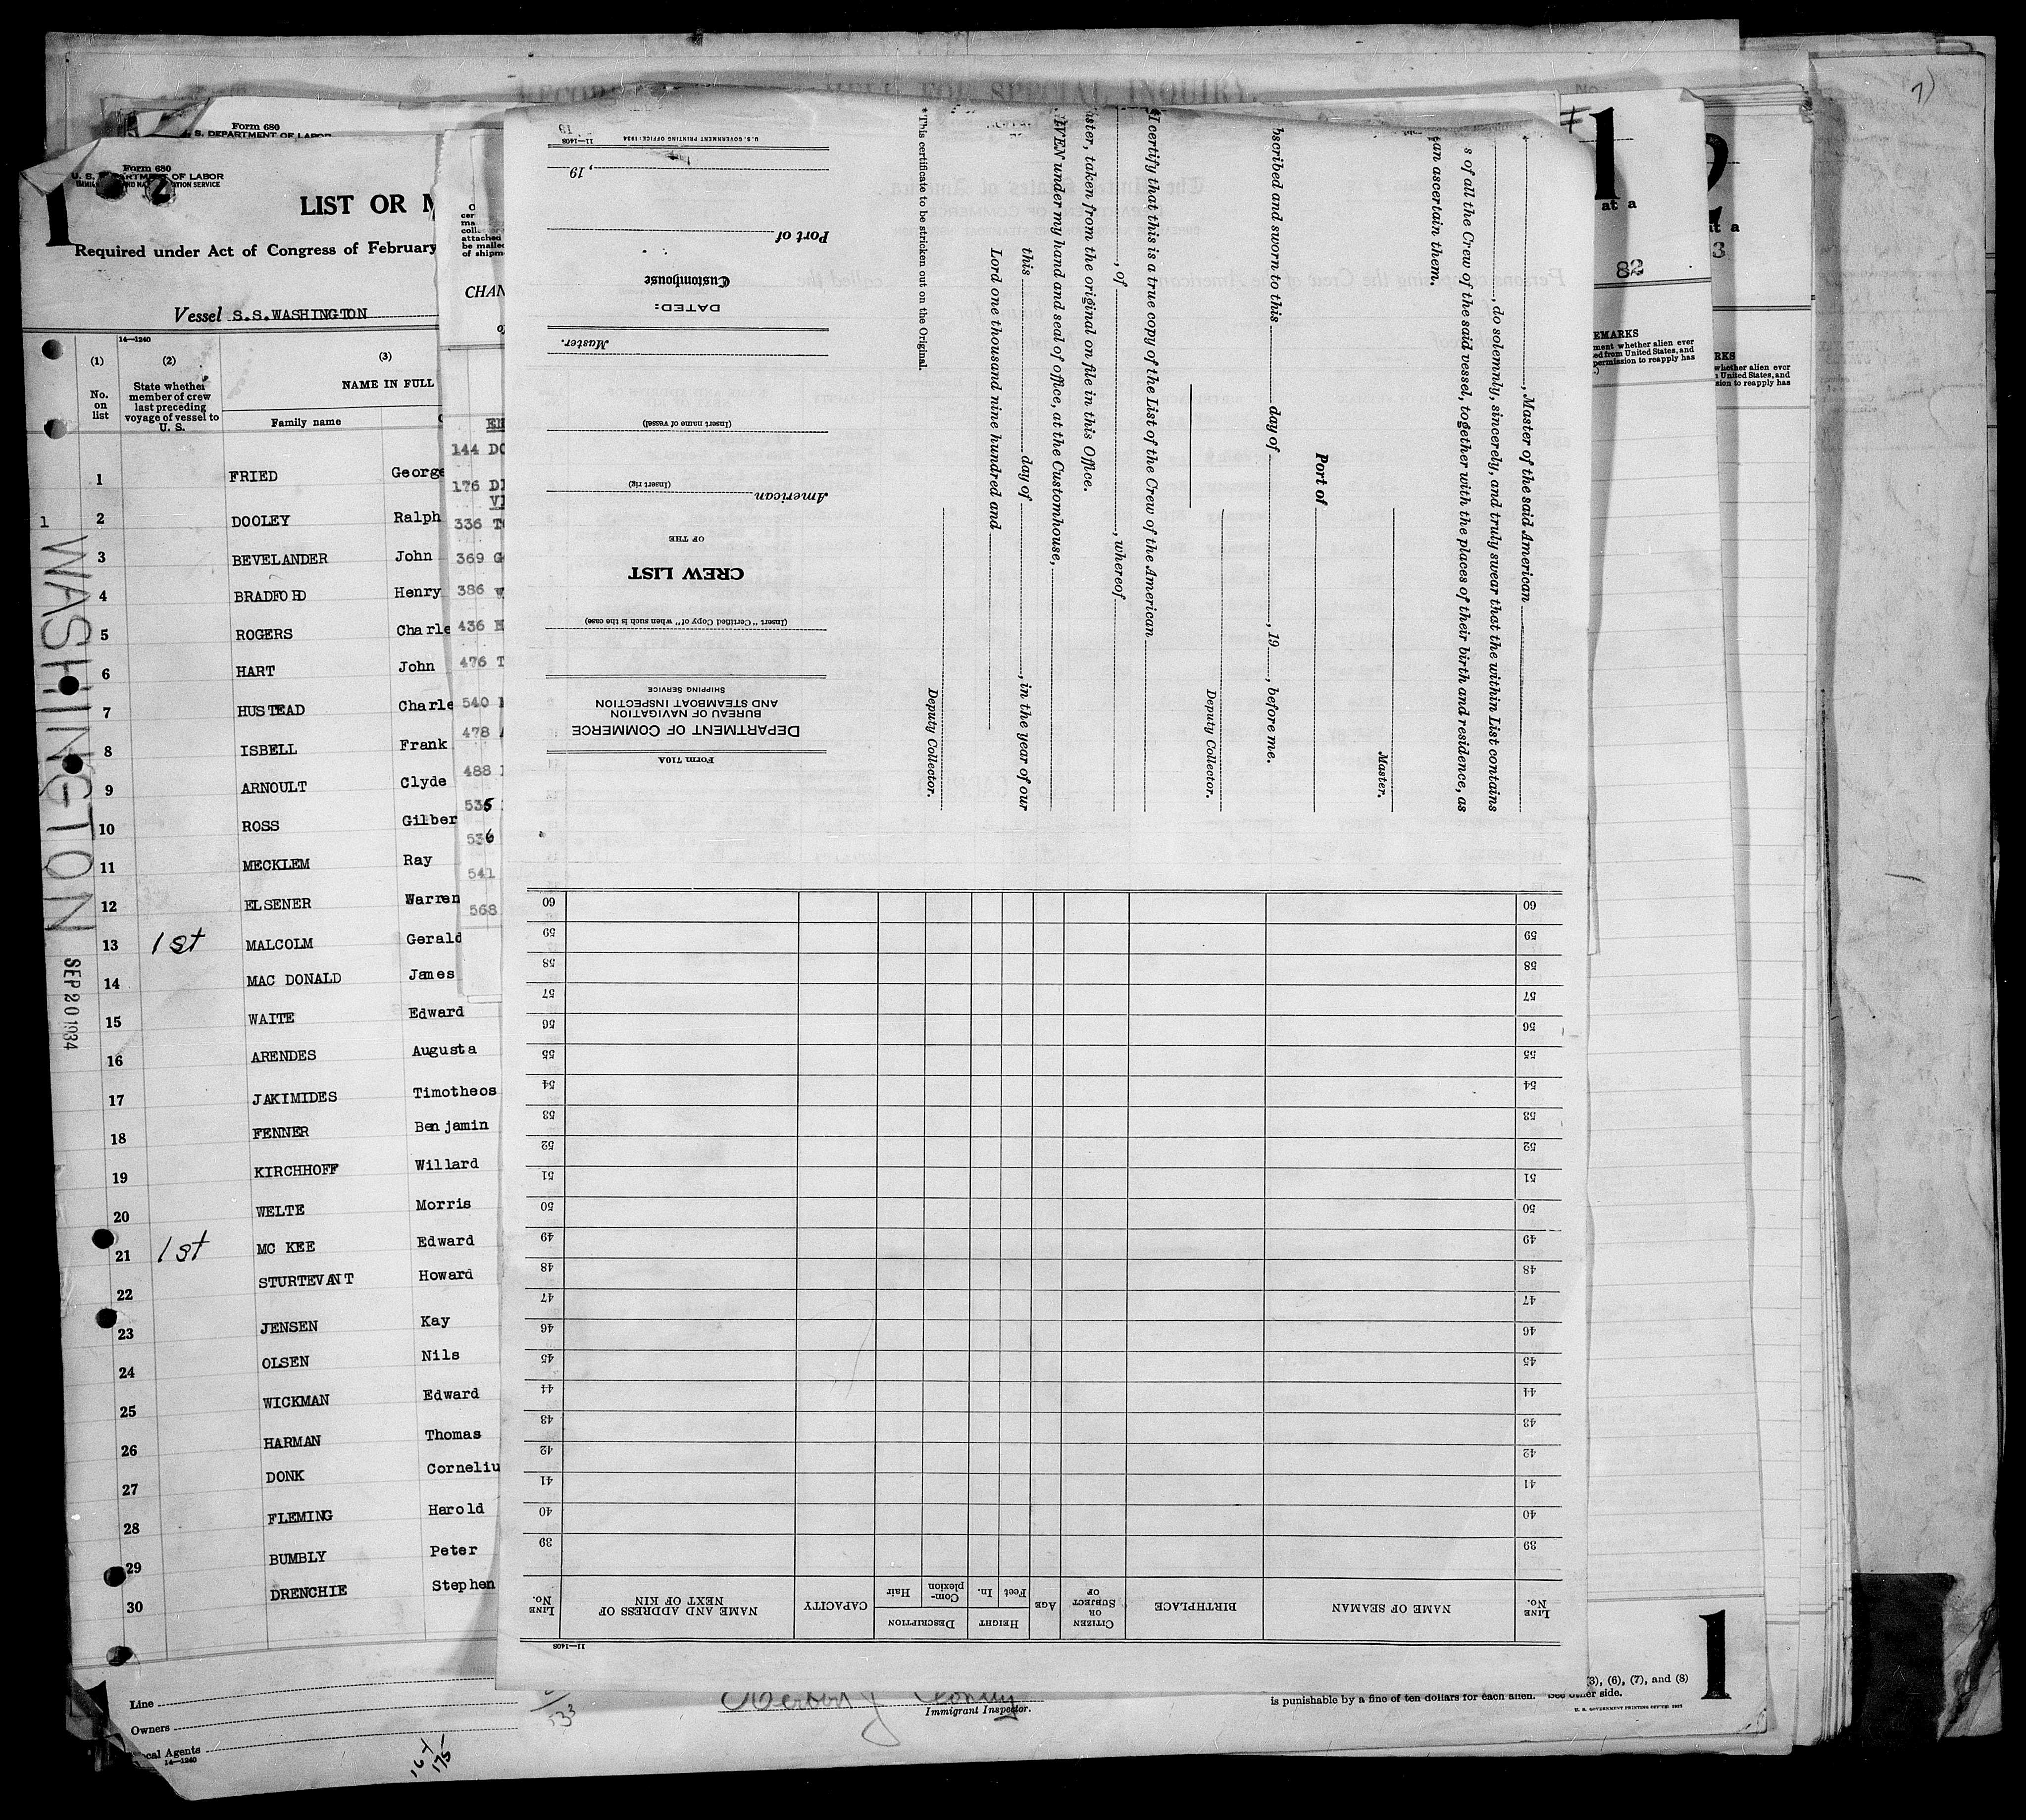 FOR SPECIAL INQUIRY.
No.
Form 680
S. DEPARTMENT OF LABOR
Form 680
U. S. DEPARTMENT OF LABOR
1
2
LIST OR
Required under Act of Congress of February
Vessel S.S.WASHINGTON
14—1240
(1)
No. on list
(2)
State whether member of crew last preceding voyage of vessel to U. S.
(3)
NAME IN FULL
Family name
1 FRIED George
1
2 DOOLEY Ralph
3 BEVELANDER John
4 BRADFORD Henry
5 ROGERS Charle
6 HART John
7 HUSTEAD Charle
8 ISBELL Frank
9 ARNOULT Clyde
10 ROSS Gilber
11 MECKLEM Ray
12 ELSENER Warren
13 1st MALCOLM Gerald
14 MAC DONALD James
15 WAITE Edward
16 ARENDES Augusta
17 JAKIMIDES Timotheos
18 FENNER Benjamin
19 KIRCHHOFF Willard
20 WELTE Morris
21 1st MC KEE Edward
22 STURTEVANT Howard
23 JENSEN Kay
24 OLSEN Nils
25 WICKMAN Edward
26 HARMAN Thomas
27 DONK Corneliu
28 FLEMING Harold
29 BUMBLY Peter
30 DRENCHIE Stephen
WASHINGTON
SEP 20 1934
Line
Owners
Local Agents
14—1240
175
533
attached
be mailed
of shipm
CHAN
144 DO
176 DI
336 TO
369 G
386 W
436 H
476 T
540
478
488
535
536
541
568
Form 710A
DEPARTMENT OF COMMERCE
BUREAU OF NAVIGATION
AND STEAMBOAT INSPECTION
SHIPPING SERVICE
(Insert "Certified Copy of" when such is the case)
CREW LIST
OF THE
American
(Insert rig)
(Insert name of vessel)
Master.
DATED:
Customhouse
Port of
, 19
U. S. GOVERNMENT PRINTING OFFICE: 1934
11—1408
, Master of the said American
, do solemnly, sincerely, and truly swear that the within List contains
s of all the Crew of the said vessel, together with the places of their birth and residence, as
an ascertain them.
Master.
Port of
bscribed and sworn to this day of , 19 , before me.
Deputy Collector.
I certify that this is a true copy of the List of the Crew of the American
, of , whereof
ster, taken from the original on file in this Office.
IVEN under my hand and seal of office, at the Customhouse,
this day of , in the year of our
Lord one thousand nine hundred and
Deputy Collector.
*This certificate to be stricken out on the Original.
LINE No.
NAME OF SEAMAN
BIRTHPLACE
CITIZEN OR SUBJECT OF
AGE
HEIGHT
Feet
In.
DESCRIPTION
Complexion
Hair
CAPACITY
NAME AND ADDRESS OF NEXT OF KIN
LINE No.
39 39
40 40
41 41
42 42
43 43
44 44
45 45
46 46
47 47
48 48
49 49
50 50
51 51
52 52
53 53
54 54
55 55
56 56
57 57
58 58
59 59
60 60
11—1408
#1
at a
82
EMARKS
ment whether alien ever
ed from United States, and
permission to reapply has
at a
3
RKS
whether alien ever
United States, and
sion to reapply has
Immigrant Inspector.
(3), (6), (7), and (8)
is punishable by a fine of ten dollars for each alien. See other side.
1